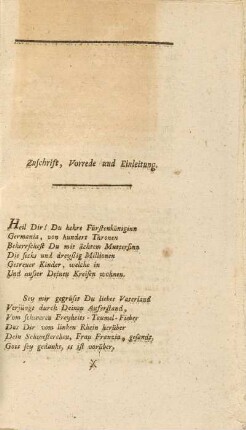 Zuschrift, Vorrede und Einleitung.
Heil Dir! Du hehre Fürstenköniginn
Germania, von hundert Thronen
Beherrschest Du mit ächtem Muttersinn
Die sechs und dreyssig Millionen
Getreuer Kinder, welche in
Und ausser Deinen Kreisen wohnen.
Sey mir gegrüsst Du liebes Vaterland
Verjüngt durch Deinen Aufersstand,
Vom schwarzen Freyheits-Taumel-Fieber
Das Dir vom linken Rhein herüber
Dein Schwesterchen, Frau Franzia, gesandt,
Gott sey gedankt, es ist vorüber,